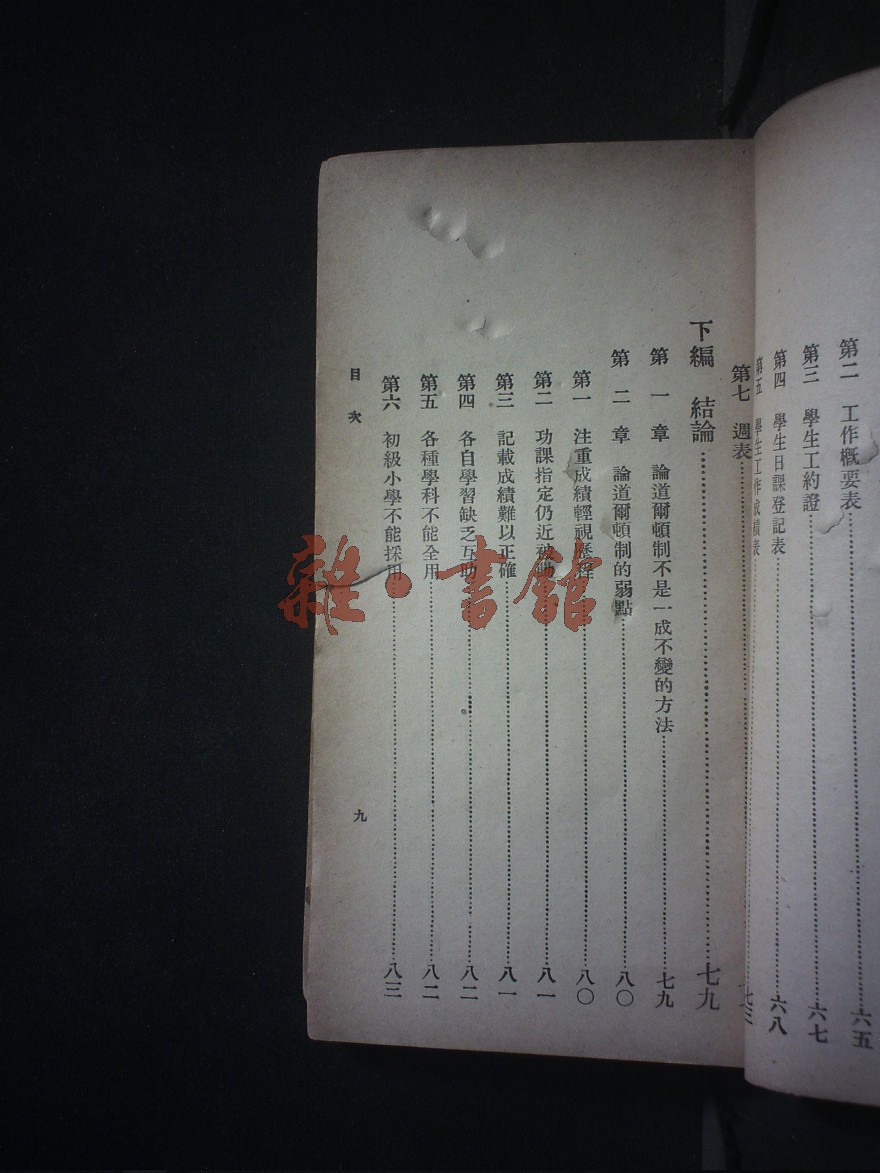 第二 工作概要表 六五
第三 學生工約證 六七
第四 學生日課登記表 六八
第五 學生工作成績表
第七 週表 七三
下編 結論 七九
第一章 論道爾頓制不是一成不變的方法 七九
第二章 論道爾頓制的弱點 八〇
第一 注重成績輕視歷程 八〇
第二 功課指定仍近被動 八一
第三 記載成績難以正確 八一
第四 各自學習缺乏互助 八二
第五 各種學科不能全用 八二
第六 初級小學不能採用 八三
目次 九
雜·書館